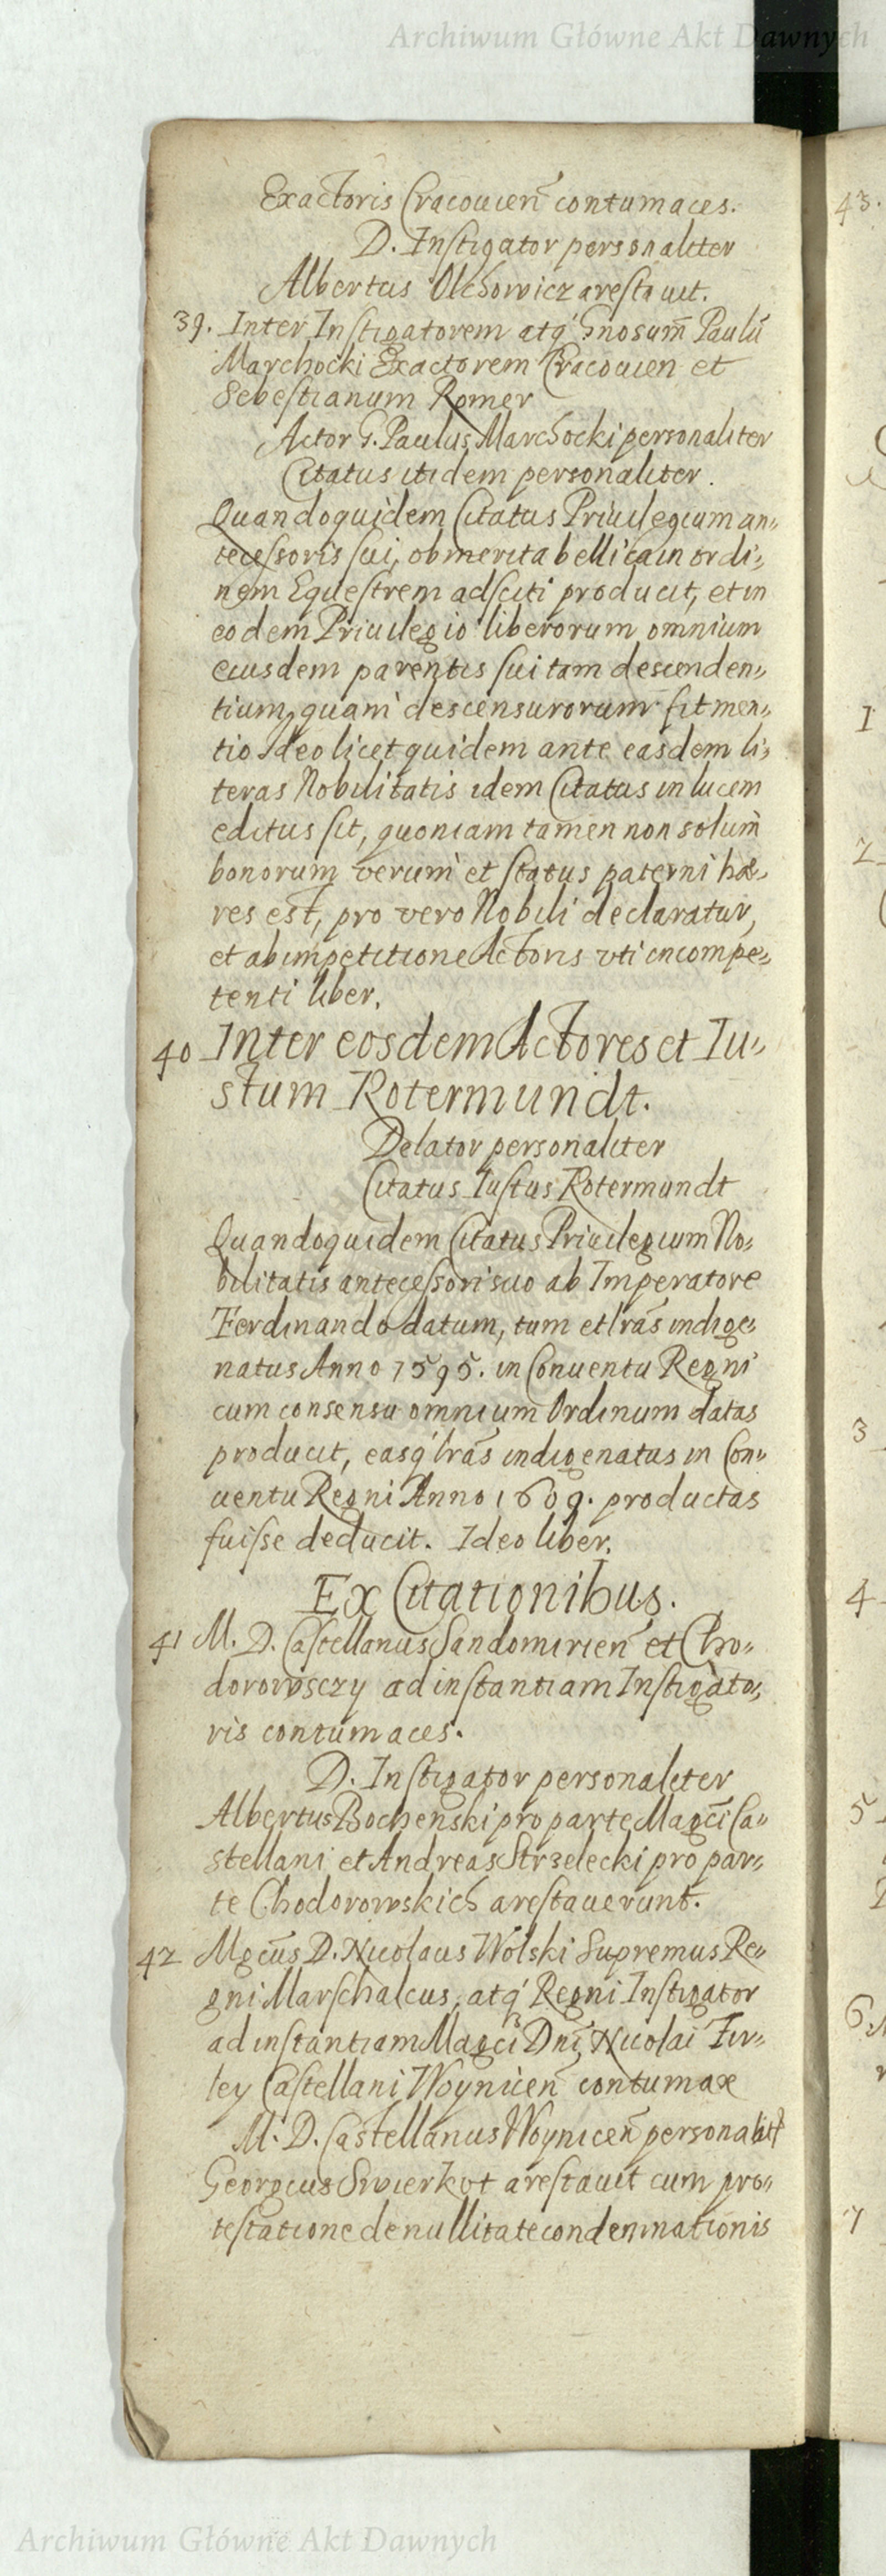 Archiwum Główne Akt Dawnych
Exactoris Cracouien̄ contumaces.
D. Instigator personaliter
Albertus Olchowicz arestauit.
39. Inter Instigatorem atq́ Gnosum̄ Paulū
Marchocki Exactorem Cracouien et
Sebestianum Romer
Actor G. Paulus Marchocki personaliter
Citatus itidem personaliter.
Quandoquidem Citatus Priuilegium an„
tecessoris sui, ob merita bellica in ordi„
nem Equestrem adsciti producit, et in
eodem Priuilegio liberorum omnium
eiusdem parentis sui tam descenden„
tium, quam descensurorum fit men„
tio Ideo licet quidem ante easdem li„
teras Nobilitatis idem Citatus in lucem
editus sit, quoniam tamen non solum
bonorum verum et status paterni hæ„
res est, pro vero Nobili declaratur,
et ab impetitione Actoris vti incompe„
tenti liber.
40 Inter eosdem Actores et Iu„
stum Rotermundt.
Delator personaliter
Citatus Iustus Rotermundt
Quandoquidem Citatus Priuilegium No„
bilitatis antecessori suo ab Imperatore
Ferdinando datum, tum et lrās indige„
natus Anno 1595. in Conuentu Regni
cum consensu omnium Ordinum datas
producit, easq́ lrās indigenatus in Con„
uentu Regni Anno 1609. productas
fuisse deducit. Ideo liber.
Ex Citationibus.
41 M. D. Castellanus Sandomirien̄ et Cho„
dorowsczy ad instantiam Instigato„
ris contumaces.
D. Instigator personaliter
Albertus Bochenski pro parte Magcī Ca„
stellani et Andreas Strzelecki pro par„
te Chodorowskich arestauerunt.
42 Mgcūs D. Nicolaus Wolski Supremus Re„
gni Marschalcus, atq́ Regni Instigator
ad instantiam Magcī Dnī Nicolai Fir„
ley Castellani Woynicen̄ contumax
M. D. Castellanus Woynicen̄ personalitr̄
Georgius Swierkot arestauit cum pro„
testatione de nullitate condemnationis
43.
1
2
3
4
5
6.
7
Archiwum Główne Akt Dawnych